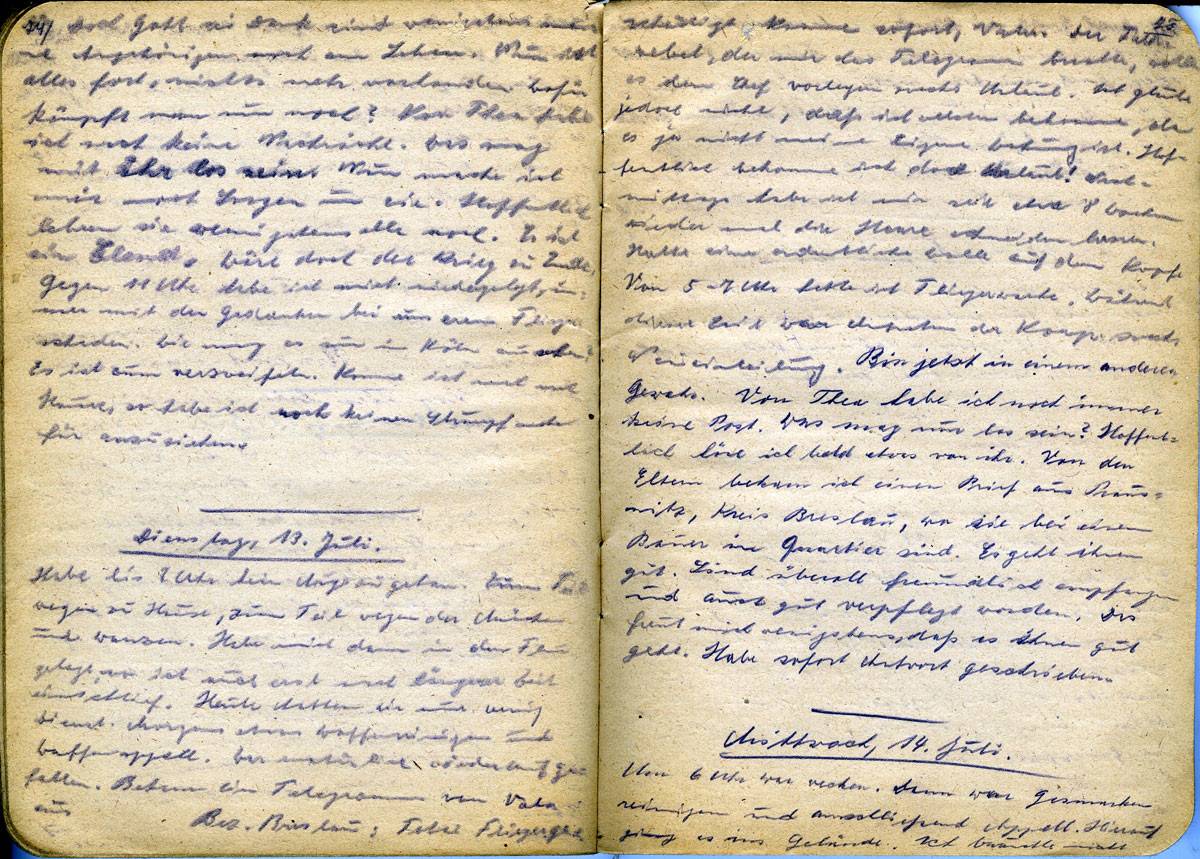 24/ Doch Gott sei Dank sind wenigstens
ne Angehörigen noch am Leben. Nun ist
alles fort, nichts mehr vorhanden. Wofür
kämpft man nun noch? Von Thea habe
ich noch keine Nachricht. Was mag
mit Ihr los sein? Nun mache ich
mir noch Sorgen um sie. Hoffentlich
leben sie wenigstens alle noch. Es ist
ein Elend. Wäre doch der Krieg zu Ende.
Gegen 11 Uhr habe ich mich niedergelegt, im-
mer mit den Gedanken bei unserem Flieger-
schaden. Wie mag es nur in Köln aussehen?
Es ist zum verzweifeln. Komme ich mal nach
Hause, so habe ich noch keinen Strumpf mehr
für anzuziehen.
Dienstag, 13. Juli.
Habe bis 2 Uhr kein Auge zugetan. Zum Teil
wegen zu Hause, zum Teil wegen der Mücken
und Wanzen. Habe mich dann in den Flur
gelegt, wo ich auch erst nach längerer Zeit
einschlief. Heute hatten wir nur wenig
Dienst. Morgens etwas Waffenreinigen und
Waffenappell. Bin natürlich wieder aufge-
fallen. Bekam ein Telegramm von Vater
aus
Bez. Breslau: Total Fliegerge-
25
schädigt komme sofort, Vater. Der
webel, der mir das Telegramm brachte, wollte
es dem Chef vorlegen wegen Urlaub. Ich glaube
jedoch nicht, daß ich welchen bekomme, da
es ja nicht meine Eigene Wohnung ist. Hof-
fentlich bekomme ich doch Urlaub! Nach-
mittags habe ich mir seit etwa 8 Wochen
wieder mal die Haare schneiden lassen.
Hatte eine ordentliche Wolle auf dem Kopf.
Von 5-7 Uhr hatte ich Fliegerwache. Während
dieser Zeit war Antreten der Komp. zwecks
Neueinteilung. Bin jetzt in einem anderen
Gewehr. Von Thea habe ich noch immer
keine Post. Was mag nur los sein? Hoffent-
lich höre ich bald etwas von ihr. Von den
Eltern bekam ich einen Brief aus Praus-
nitz, Kreis Breslau, wo sie bei einem
Bauer in Quartier sind. Es geht ihnen
gut. Sind überall freundlich empfangen
und auch gut verpflegt worden. Das
freut mich wenigstens, daß es ihnen gut
geht. Habe sofort Antwort geschrieben.
Mittwoch, 14. Juli.
Um 6 Uhr war wecken. Dann war Gasmasken
reinigen und anschließend Appell. Hierauf
ging es ins Gelände. Ich brauchte nicht